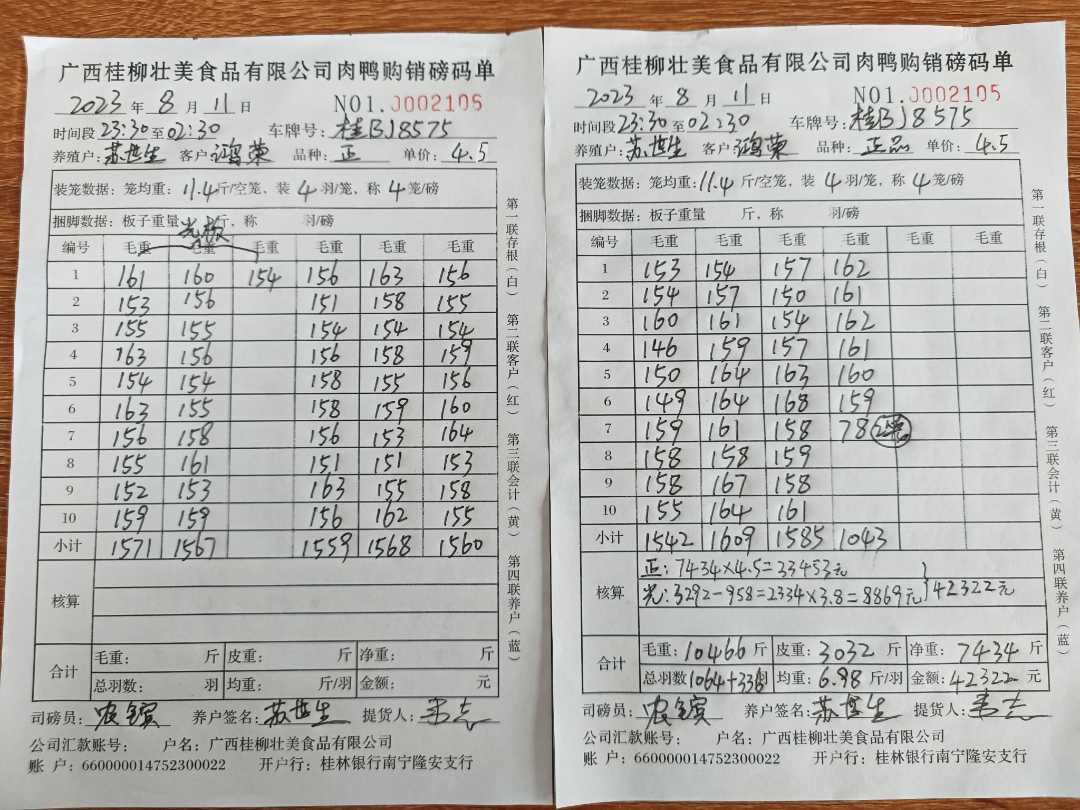 广西桂柳壮美食品有限公司肉鸭购销磅码单
2023 年 8 月 11 日 NO1.0002106
时间段 23:30 至 02:30 车牌号: 桂BJ8575
养殖户: 苏世生 客户 鸿荣 品种: 正 单价: 4.5
装笼数据: 笼均重: 11.4 斤/空笼, 装 4 羽/笼, 称 4 笼/磅
捆脚数据: 板子重量 斤, 称 羽/磅
光板
编号 毛重 毛重 毛重 毛重 毛重 毛重
1 161 160 154 156 163 156
2 153 156 151 158 155
3 155 155 154 154 154
4 163 156 156 158 159
5 154 154 158 155 156
6 163 155 158 159 160
7 156 158 156 153 164
8 155 161 151 151 153
9 152 153 163 155 158
10 159 159 156 162 155
小计 1571 1567 1559 1568 1560
核算
合计 毛重: 斤 皮重: 斤 净重: 斤
总羽数: 羽 均重: 斤/羽 金额: 元
司磅员: 养户签名: 苏世生 提货人:
公司汇款账号: 户名: 广西桂柳壮美食品有限公司
账 户: 660000014752300022 开户行: 桂林银行南宁隆安支行
第一联存根(白) 第二联客户(红) 第三联会计(黄) 第四联养户(蓝)
广西桂柳壮美食品有限公司肉鸭购销磅码单
2023 年 8 月 11 日 NO1.0002105
时间段 23:30 至 02:30 车牌号: 桂BJ8575
养殖户: 苏世生 客户 鸿荣 品种: 正品 单价: 4.5
装笼数据: 笼均重: 11.4 斤/空笼, 装 4 羽/笼, 称 4 笼/磅
捆脚数据: 板子重量 斤, 称 羽/磅
编号 毛重 毛重 毛重 毛重 毛重 毛重
1 153 154 157 162
2 154 157 150 161
3 160 161 154 162
4 146 159 157 161
5 150 164 163 160
6 149 164 168 159
7 159 161 158 78
8 158 158 159
9 158 167 158
10 155 164 161
小计 1542 1609 1585 1043
核算 正: 7434×4.5=33453元
光: 3292-958=2334×3.8=8869元 }42322元
合计 毛重: 10466 斤 皮重: 3032 斤 净重: 7434 斤
总羽数 1064+336 羽 均重: 6.98 斤/羽 金额: 42322 元
司磅员: 养户签名: 苏世生 提货人:
公司汇款账号: 户名: 广西桂柳壮美食品有限公司
账 户: 660000014752300022 开户行: 桂林银行南宁隆安支行
第一联存根(白) 第二联客户(红) 第三联会计(黄) 第四联养户(蓝)